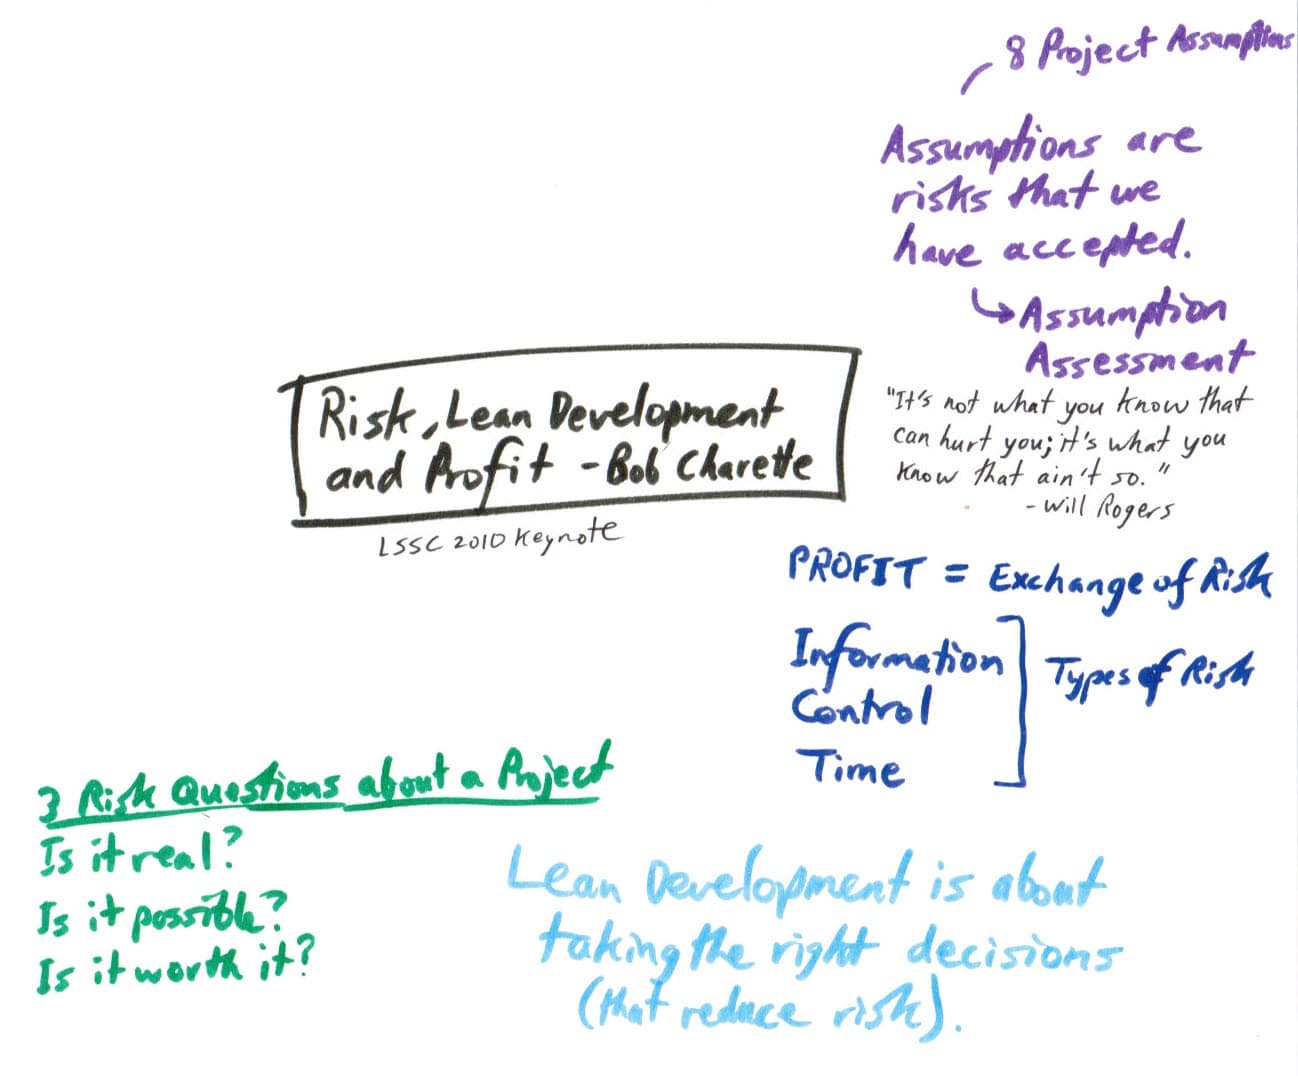 8 Project Assumptions
Assumptions are
risks that we
have accepted.
Assumption
Assessment
"It's not what you know that
can hurt you; it's what you
know that ain't so."
- Will Rogers
Risk, Lean Development
and Profit - Bob Charette
LSSC 2010 Keynote
PROFIT = Exchange of Risk
Information
Control
Time
Types of Risk
3 Risk Questions about a Project
Is it real?
Is it possible?
Is it worth it?
Lean Development is about
taking the right decisions
(that reduce risk).